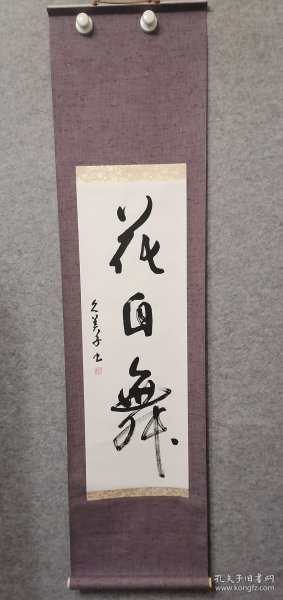 花自舞
久美子书
孔夫子旧书网
www.kongfz.com